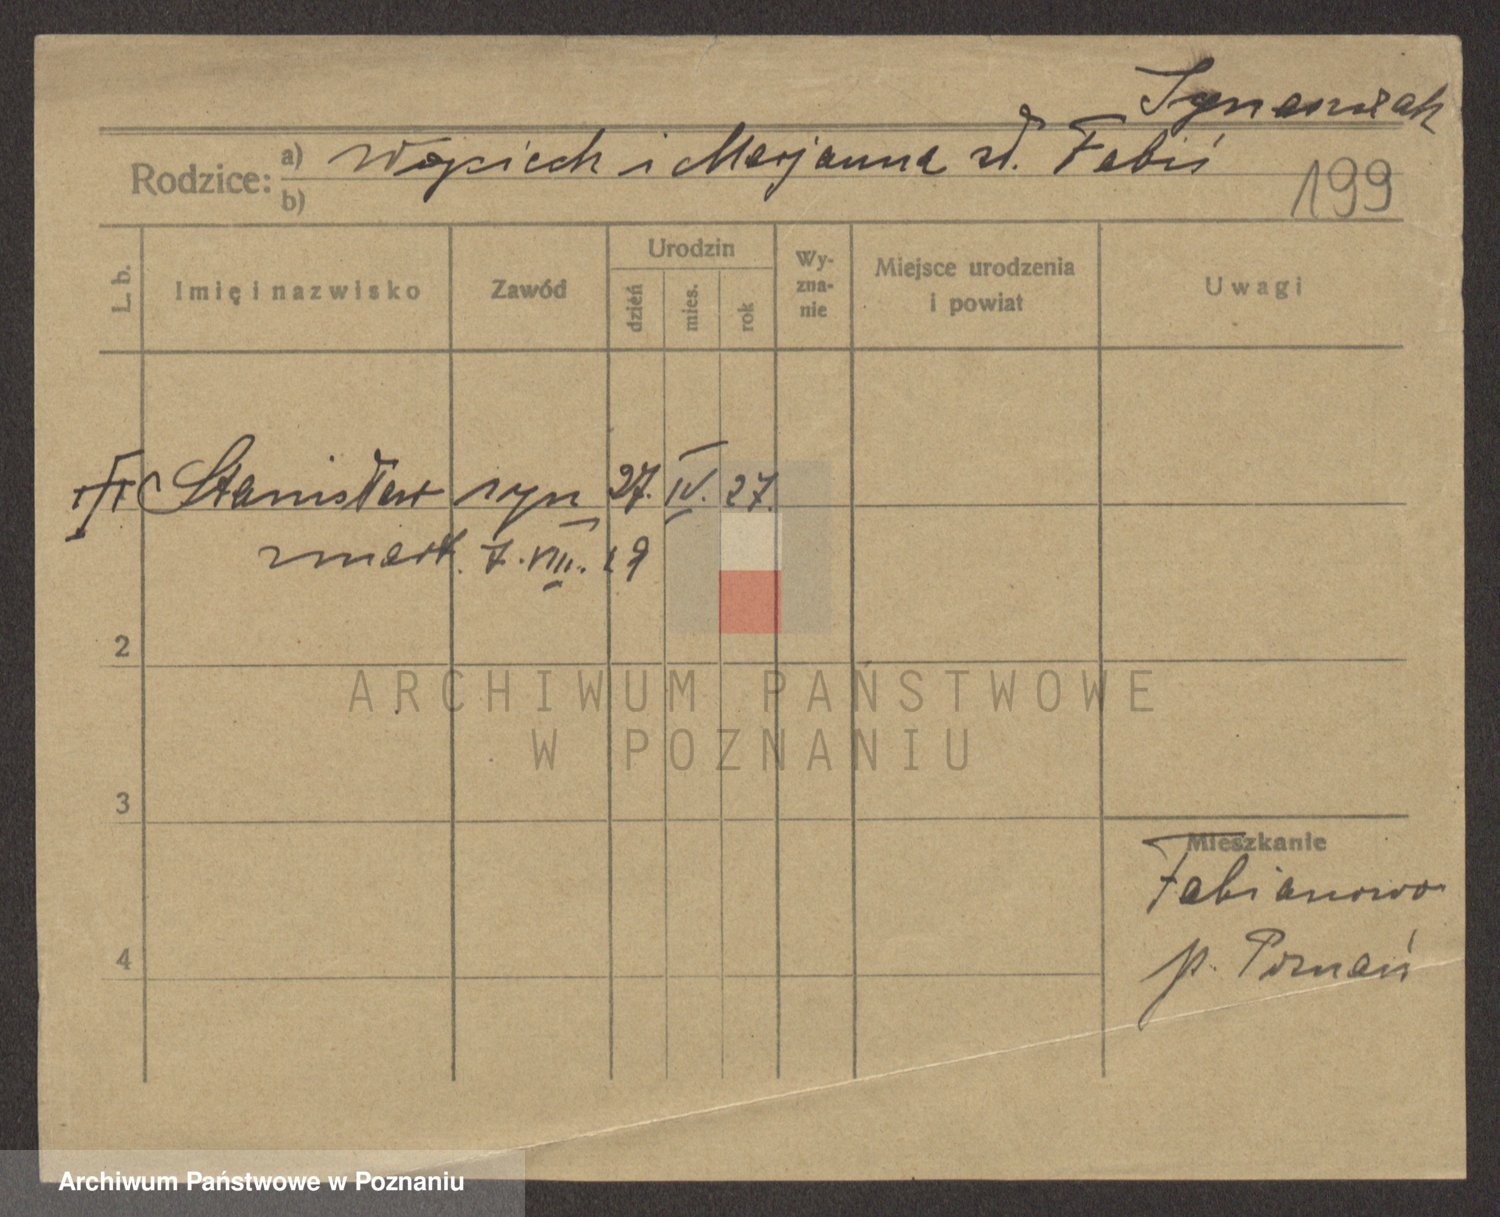 Ignaszak
Rodzice: a) Wojciech i Marjanna zd. Fabiś
b)
199
L. b. Imię i nazwisko Zawód Urodzin dzień mies. rok Wyzna-nie Miejsce urodzenia i powiat Uwagi
Stanisław syn 27. IV. 27.
zmarł. 7. VIII. 29
2
3
4
Mieszkanie
Fabianowo
p. Poznań
ARCHIWUM PAŃSTWOWE
W POZNANIU
Archiwum Państwowe w Poznaniu